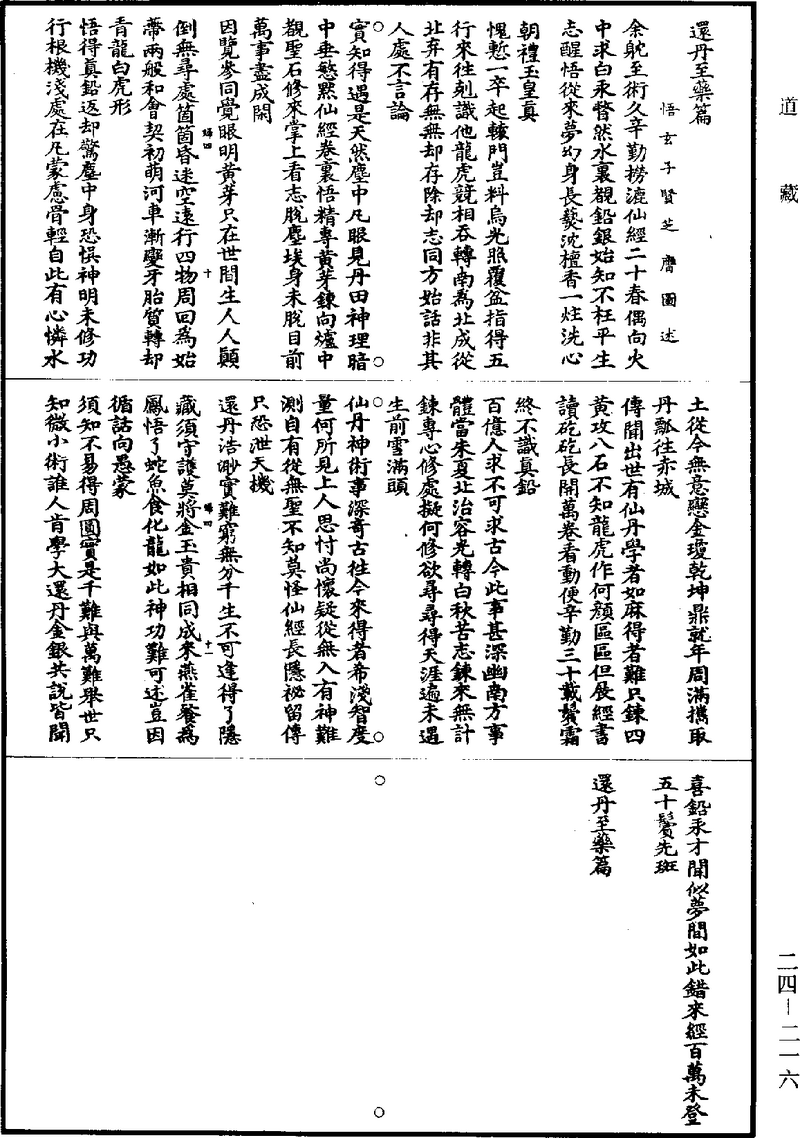 道藏
還丹至藥篇
悟玄子賢芝膺圖述
余躭至術久辛勤撈漉仙經二十春偶向火
中求白汞瞥然水裏覩鉛銀始知不枉平生
志醒悟從來夢幻身長爇沈檀香一炷洗心
朝禮玉皇真
愧慙一卒起轅門豈料烏光照覆盆指得五
行來往剋識他龍虎競相吞轉南爲北成從
北弃有存無無却存除却志同方始話非其
人處不言論
實知得遇是天然塵中凡眼見丹田神理暗
中垂慜黙仙經卷裏悟精專黃芽鍊向爐中
覩聖石修來掌上看志脫塵埃身未脫目前
萬事盡成閑
因覽參同覺眼明黃芽只在世間生人人顛
倒無尋處箇箇昏迷空遠行四物周回爲始
蔕兩般和會契初萌河車漸變牙胎質轉却
青龍白虎形
悟得真鉛返却驚塵中身恐懼神明未修功
行根機淺處在凡蒙慮骨輕自此有心憐水
婦四 十
土從今無意戀金瓊乾坤鼎就年周滿攜取
丹瓢往赤城
傳聞出世有仙丹學者如麻得者難只鍊四
黃攻八石不知龍虎作何顏區區但啟經書
讀矻矻長開萬卷看動便辛勤三十載鬢霜
終不識真鉛
百億人求不可求古今此事甚深幽南方事
體當朱夏北治容光轉白秋苦志鍊來無計
鍊專心修處擬何修欲尋尋得天涯遍未遇
生前雪滿頭
仙丹神術事深奇古往今來得者希淺智度
量何所見上人思忖尚懷疑從無入有神難
測自有從無聖不知莫怪仙經長隱祕留傳
只恐泄天機
還丹浩渺實難窮無分千生不可逢得了隱
藏須守護莫將金玉貴相同成來燕雀飡爲
鳳悟了蛇魚食化龍如此神功難可述豈因
循話向愚蒙
須知不易得周圓實是千難與萬難舉世只
知微小術誰人肯學大還丹金銀共說皆開
婦四 十一
喜鉛汞才聞似夢間如此錯來經百萬未登
五十鬢先斑
還丹至藥篇
二四—二一六